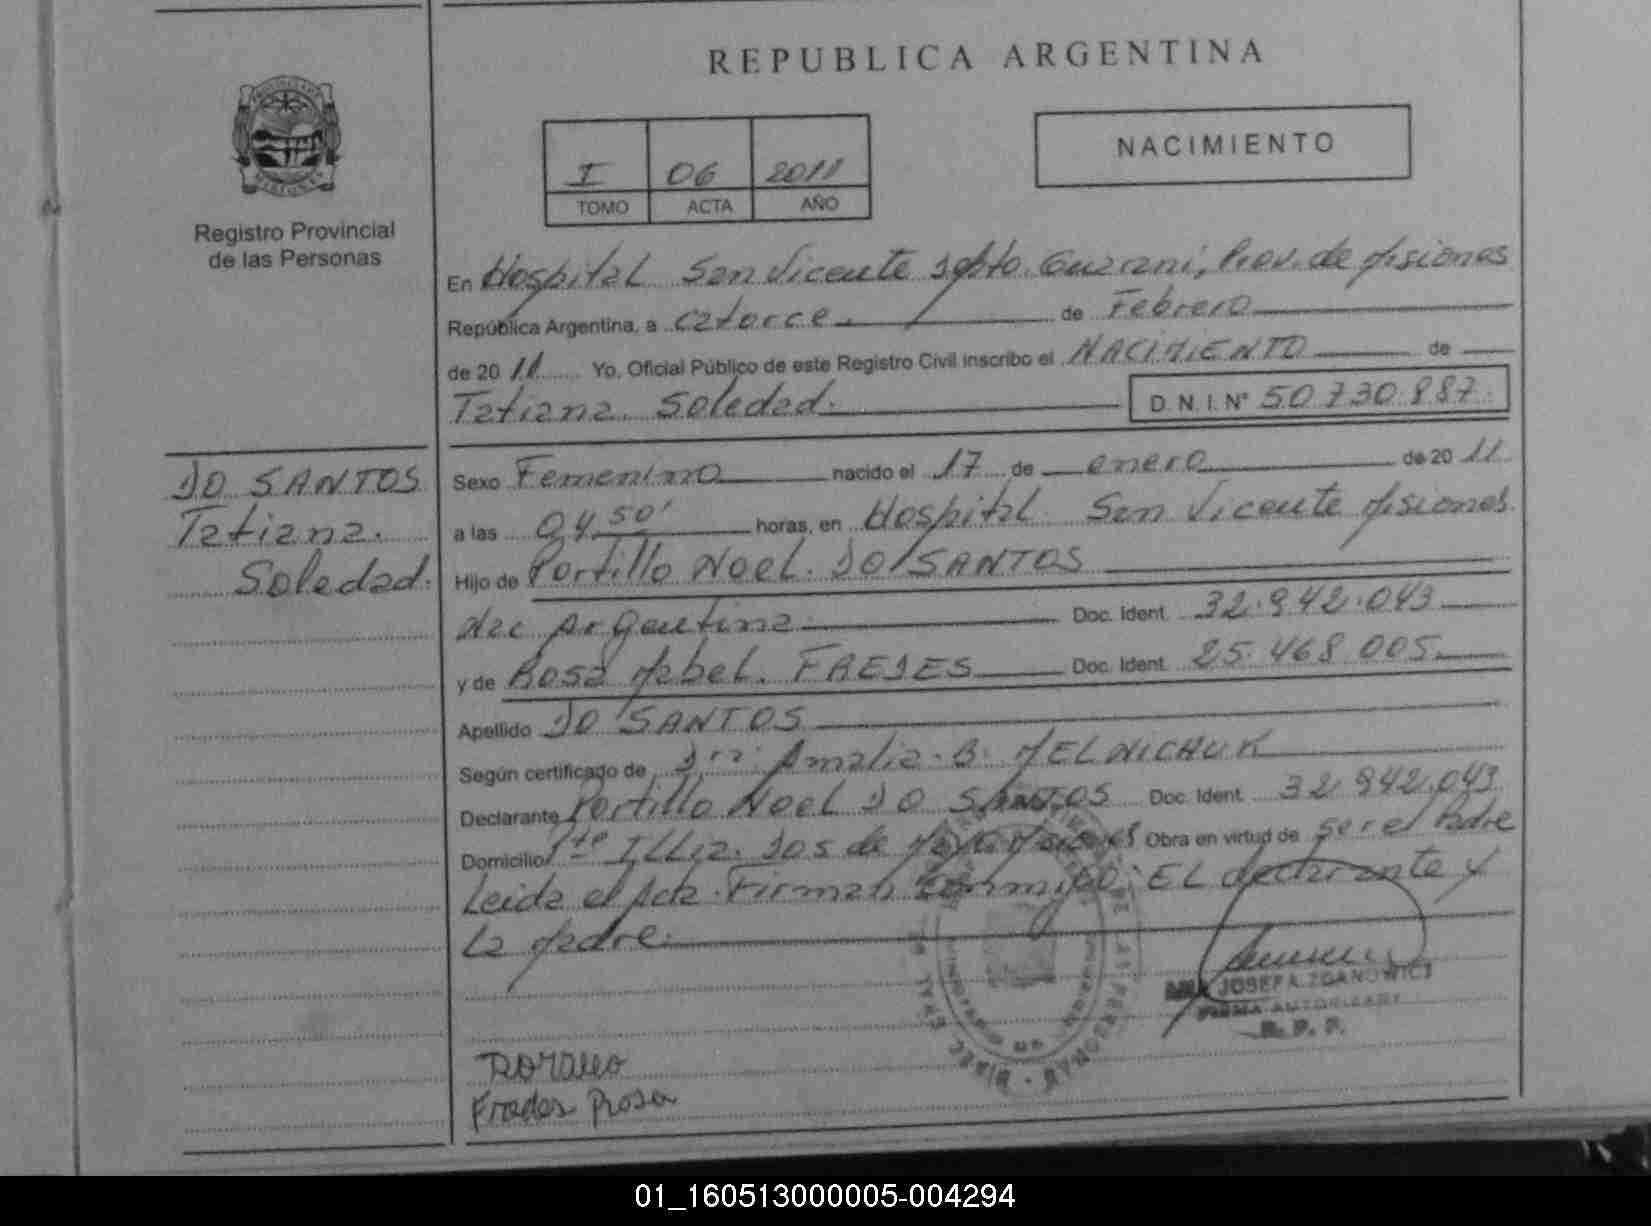 REPUBLICA ARGENTINA
NACIMIENTO
I 06 2011
TOMO ACTA AÑO
PROVINCIA DE MISIONES
Registro Provincial
de las Personas
En Hospital San Vicente Dpto. Guarani, Prov. de Misiones
República Argentina, a catorce. de Febrero
de 2011 Yo, Oficial Público de este Registro Civil inscribo el NACIMIENTO de
Tatiana Soledad. D.N.I. N° 50730887.
DO SANTOS
Tatiana.
Soledad.
Sexo Femenino nacido el 17 de enero de 2011
a las 04 50' horas, en Hospital San Vicente Misiones.
Hijo de Portillo Noel. DO SANTOS
Nac Argentina Doc. Ident. 32.942.043
y de Rosa Mabel. FREDES Doc. Ident. 25.468.005
Apellido DO SANTOS
Según certificado de Dra. Amalia B. MELNICHUK
Declarante Portillo Noel DO SANTOS Doc. Ident. 32 942.043
Domicilio Pte ILLia. Dos de Mayo Misiones Obra en virtud de ser el Padre
Leida el Acta. Firman Conmigo: EL declarante y
La Madre.
JOSEFA ZDANOWICZ
FIRMA AUTORIZADA
R. P. P.
Fredes Rosa
01_160513000005-004294